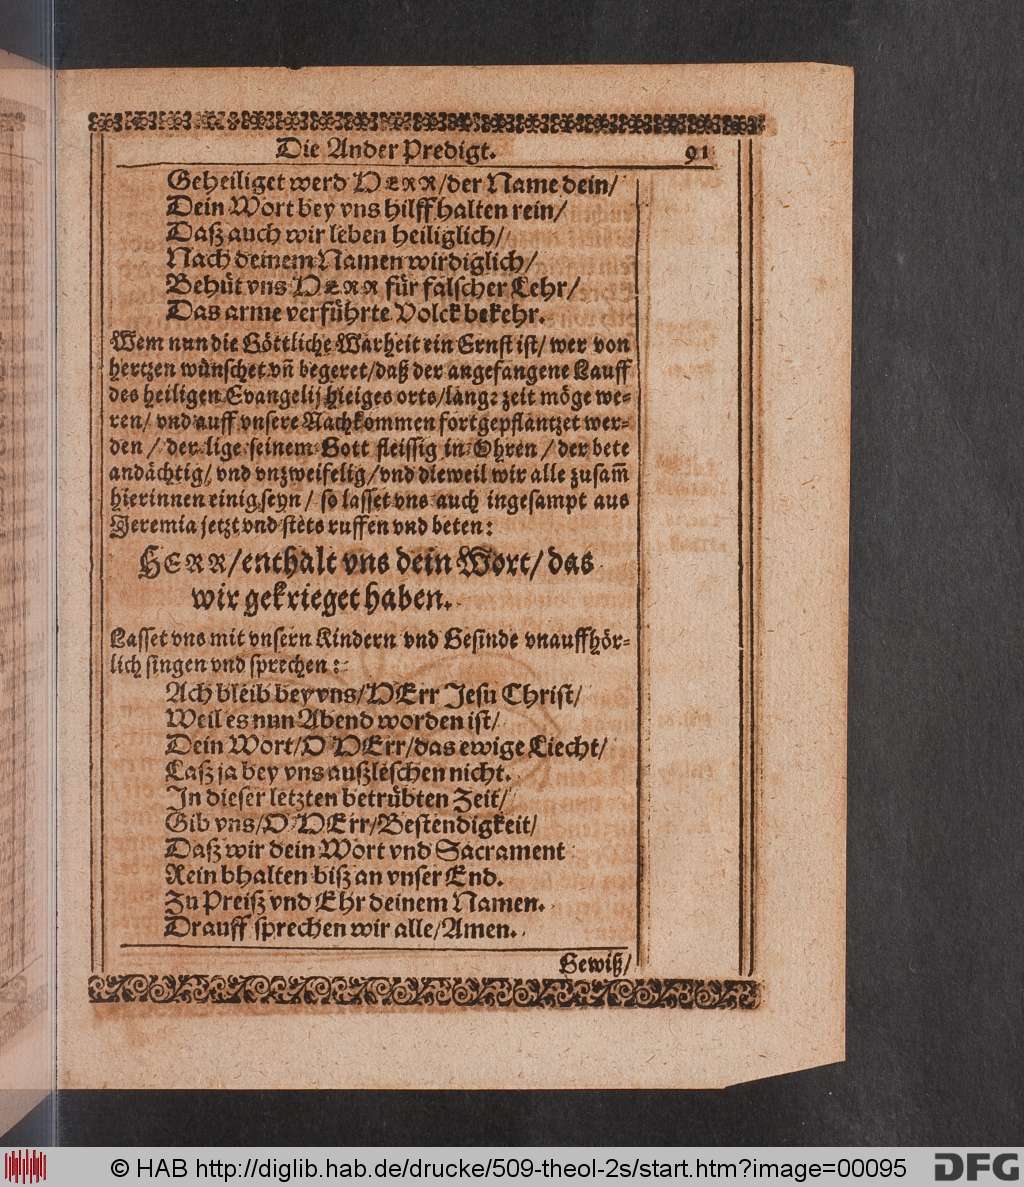 Die Ander Predigt. 91
Geheiliget werd HERR/der Name dein/
Dein Wort bey vns hilff halten rein/
Daß auch wir leben heiliglich/
Nach deinem Namen wirdiglich/
Behüt vns HERR für falscher Lehr/
Das arme verführte Volck bekehr.
Wem nun die Göttliche Warheit ein Ernst ist/ wer von
hertzen wünschet vñ begeret/daß der angefangene Lauff
des heiligen Evangelij hieiges orts/lange zeit möge we-
ren/ vnd auff vnsere Nachkommen fortgepflantzet wer-
den / der lige seinem Gott fleissig in Ohren / der bete
andächtig/ vnd vnzweifelig/vnd dieweil wir alle zusam̃
hierinnen einig seyn/ so lasset vns auch ingesampt aus
Jeremia jetzt vnd stets ruffen vnd beten:
HERR/enthalt vns dein Wort/ das
wir gekrieget haben.
Lasset vns mit vnsern Kindern vnd Gesinde vnauffhör-
lich singen vnd sprechen:
Ach bleib bey vns/HErr Jesu Christ/
Weil es nun Abend worden ist/
Dein Wort/O HErr/das ewige Liecht/
Laß ja bey vns außleschen nicht.
In dieser letzten betrübten Zeit/
Gib vns/O HErr/Bestendigkeit/
Daß wir dein Wort vnd Sacrament
Rein bhalten biß an vnser End.
Zu Preiß vnd Ehr deinem Namen.
Drauff sprechen wir alle/Amen.
Gewiß/
© HAB http://diglib.hab.de/drucke/509-theol-2s/start.htm?image=00095
DFG